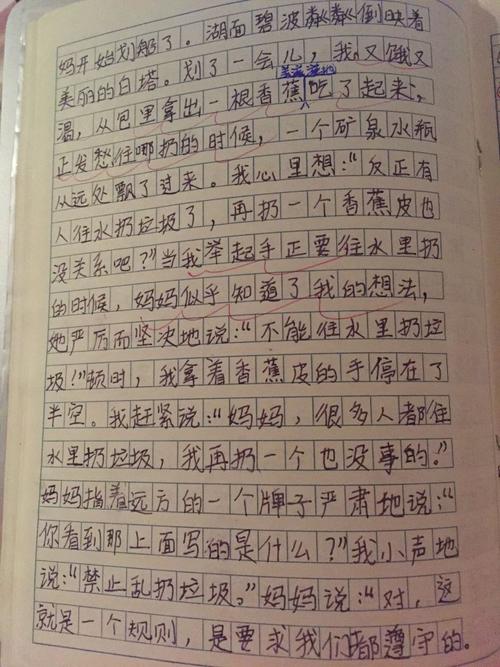 妈开始划船了。湖面碧波粼粼倒映着
美丽的白塔。划了一会儿，我又饿又
渴，从包里拿出一根香蕉美滋滋地吃了起来，
正发愁往哪扔的时候，一个矿泉水瓶
从远处飘了过来。我心里想：“反正有
人往水扔垃圾了，再扔一个香蕉皮也
没关系吧？”当我举起手正要往水里扔
的时候，妈妈似乎知道了我的想法，
她严厉而坚决地说：“不能往水里扔垃
圾！”顿时，我拿着香蕉皮的手停在了
半空。我赶紧说：“妈妈，很多人都往
水里扔垃圾，我再扔一个也没事的。”
妈妈指着远方的一个牌子严肃地说：“
你看到那上面写的是什么？”我小声地
说：“禁止乱扔垃圾。”妈妈说：“对，这
就是一个规则，是要求我们都遵守的。